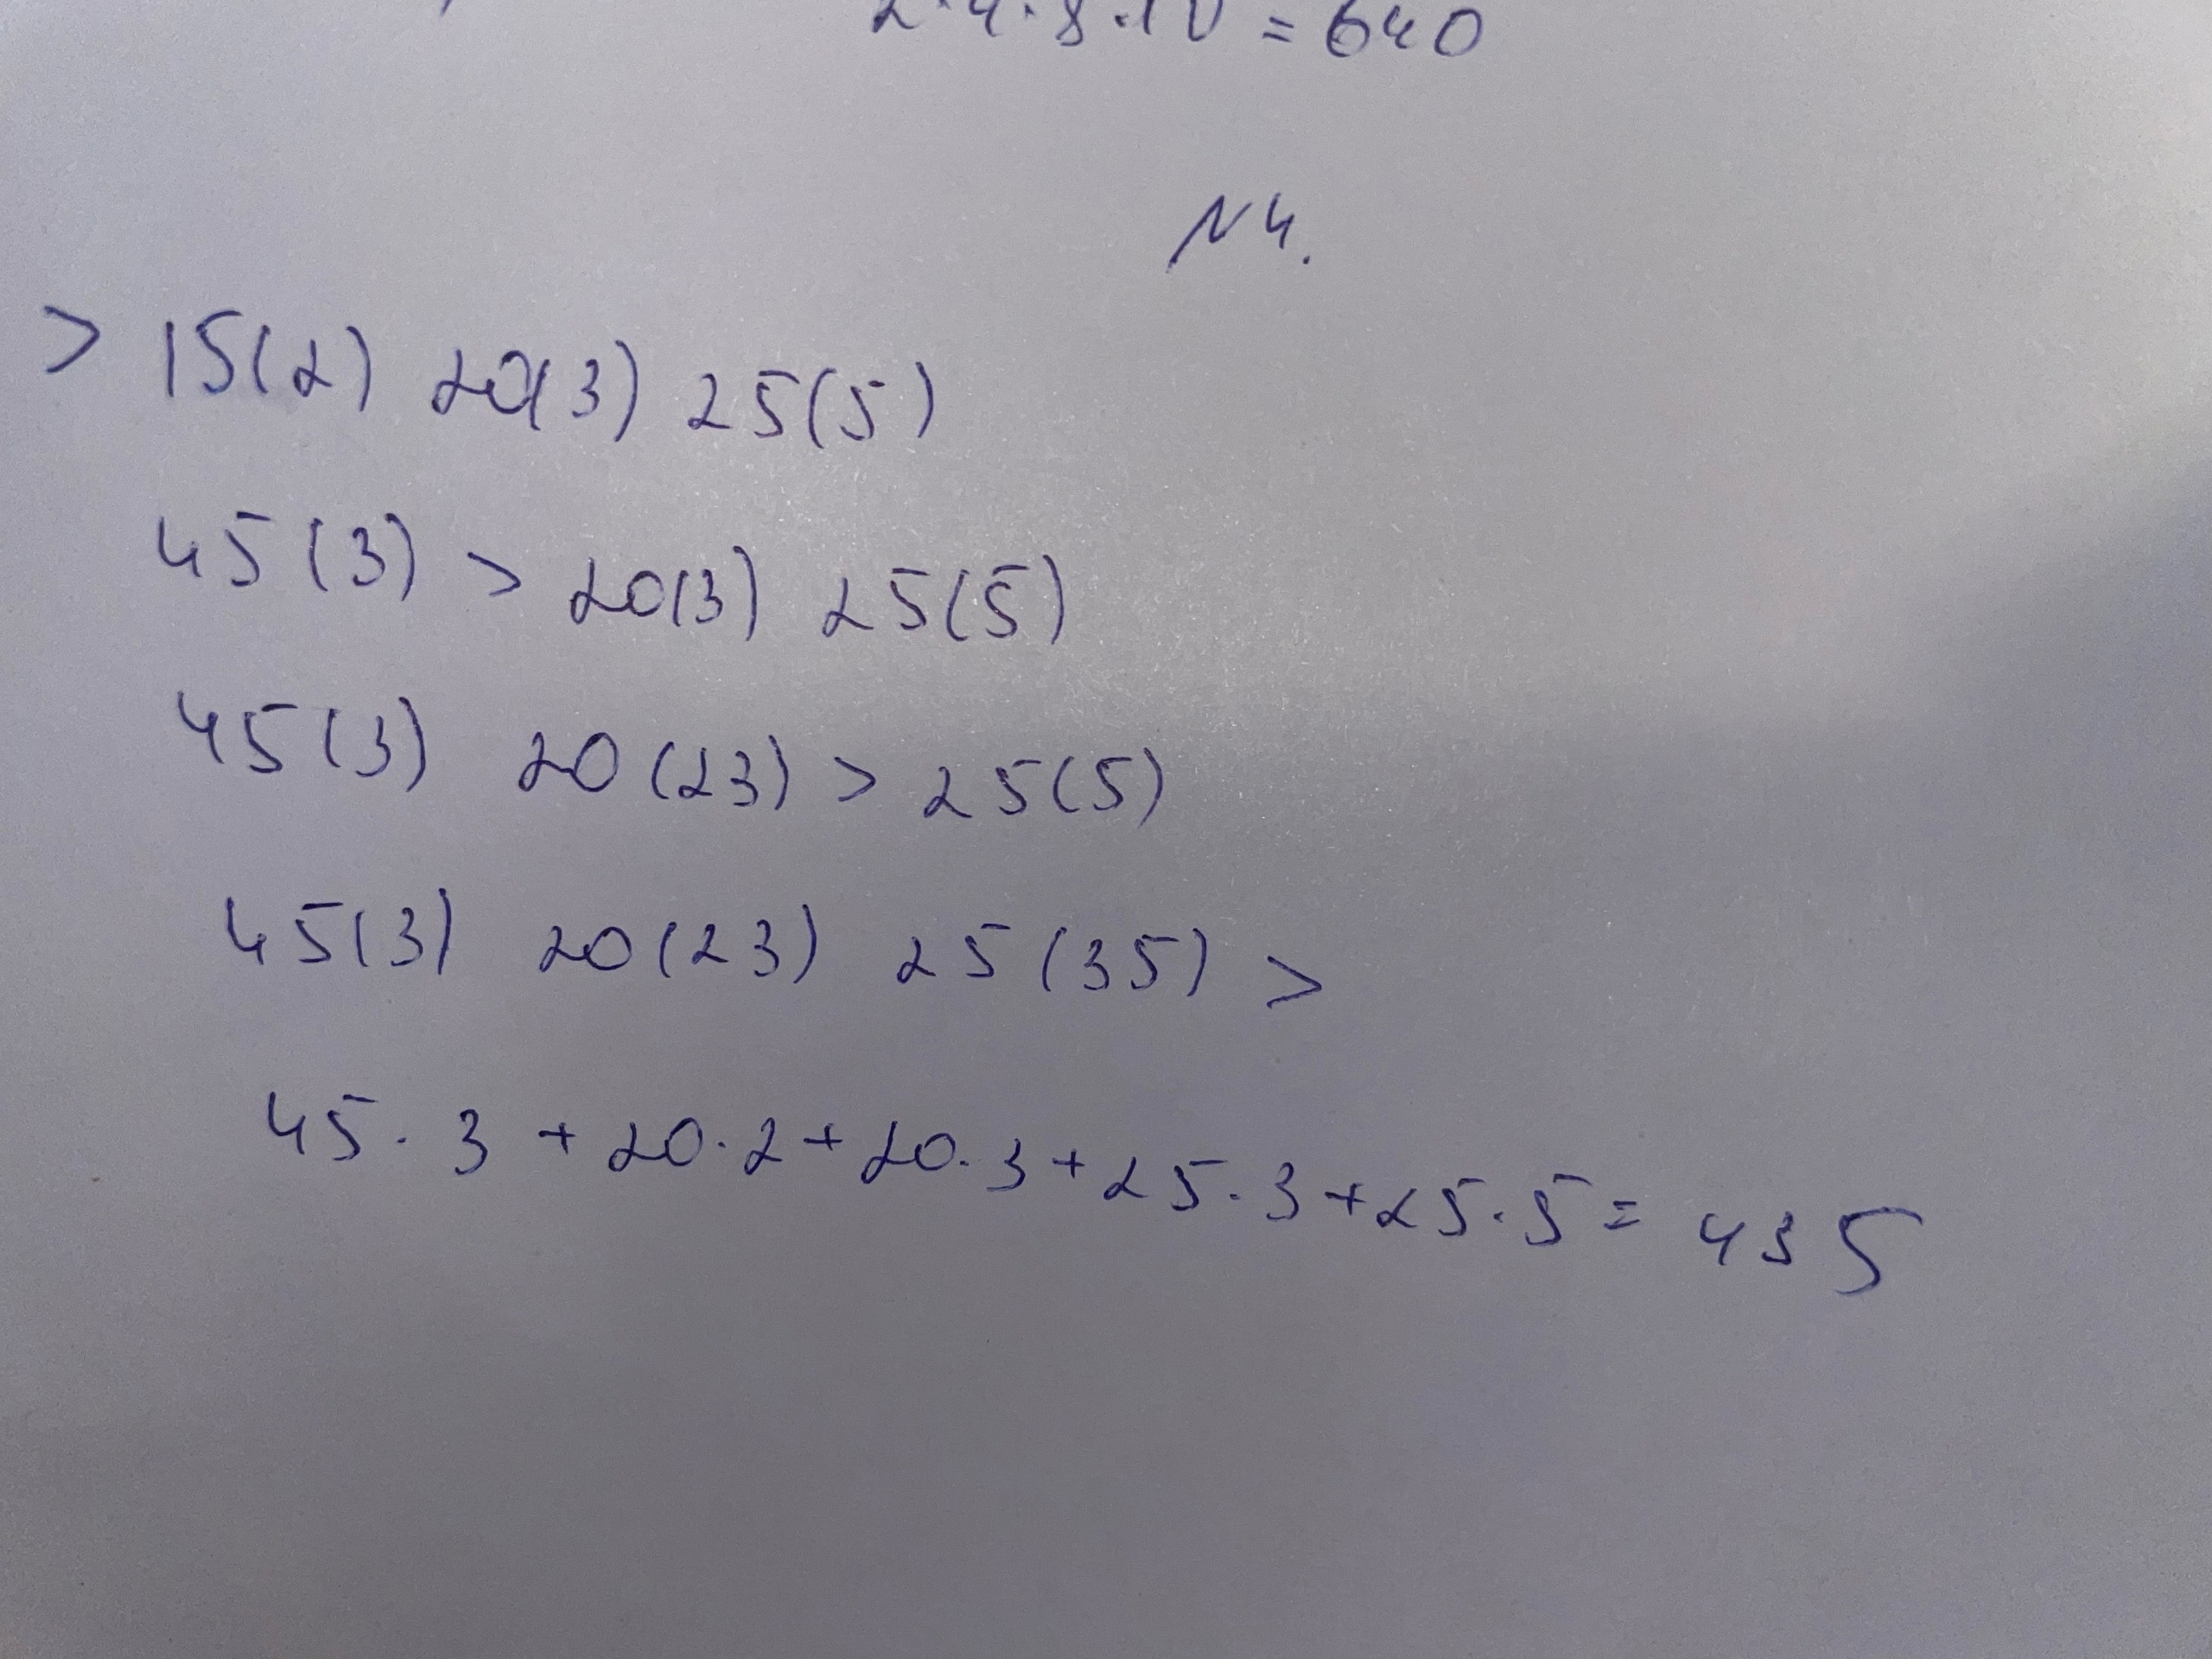 2·4·8·10 = 640
N4.
> 15(2) 20(3) 25(5)
45(3) > 20(3) 25(5)
45(3) 20(23) > 25(5)
45(3) 20(23) 25(35) >
45·3 + 20·2 + 20·3 + 25·3 + 25·5 = 435